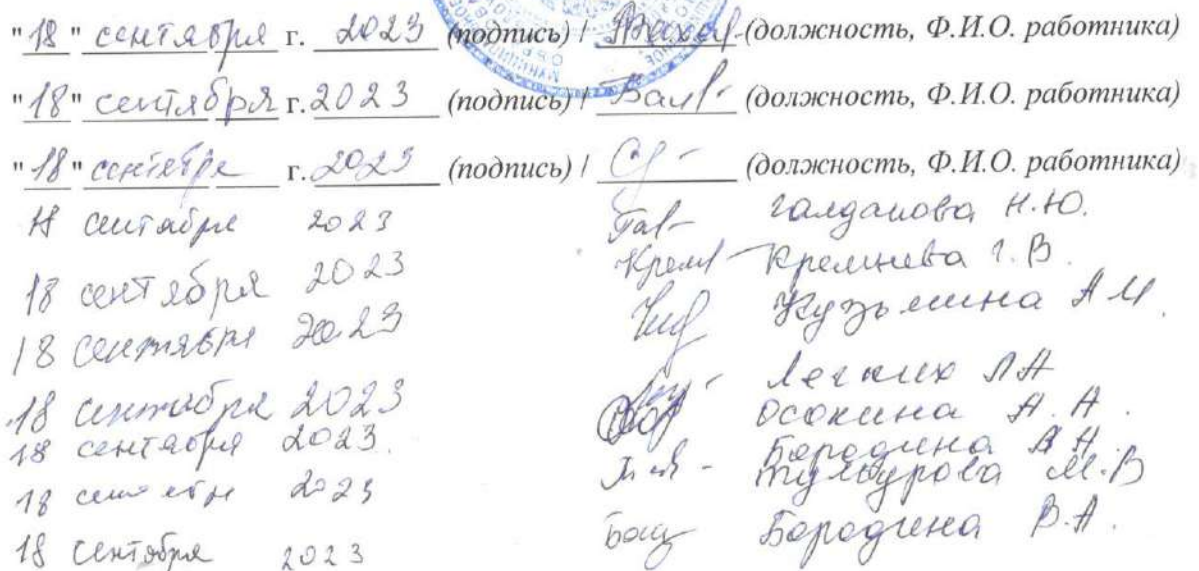 "18" сентября г. 2023 (подпись) / (должность, Ф.И.О. работника)
"18" сентября г. 2023 (подпись) / (должность, Ф.И.О. работника)
"18" сентября г. 2023 (подпись) / (должность, Ф.И.О. работника)
18 сентября 2023 Галданова Н.Ю.
18 сентября 2023 Кремнева Г.В.
18 сентября 2023 Кузьмина А М.
18 сентября 2023 Легких Л А
18 сентября 2023. Осокина А.А.
Бородина А.
18 сентября 2023 М.В
18 сентября 2023 Бородина В.А.